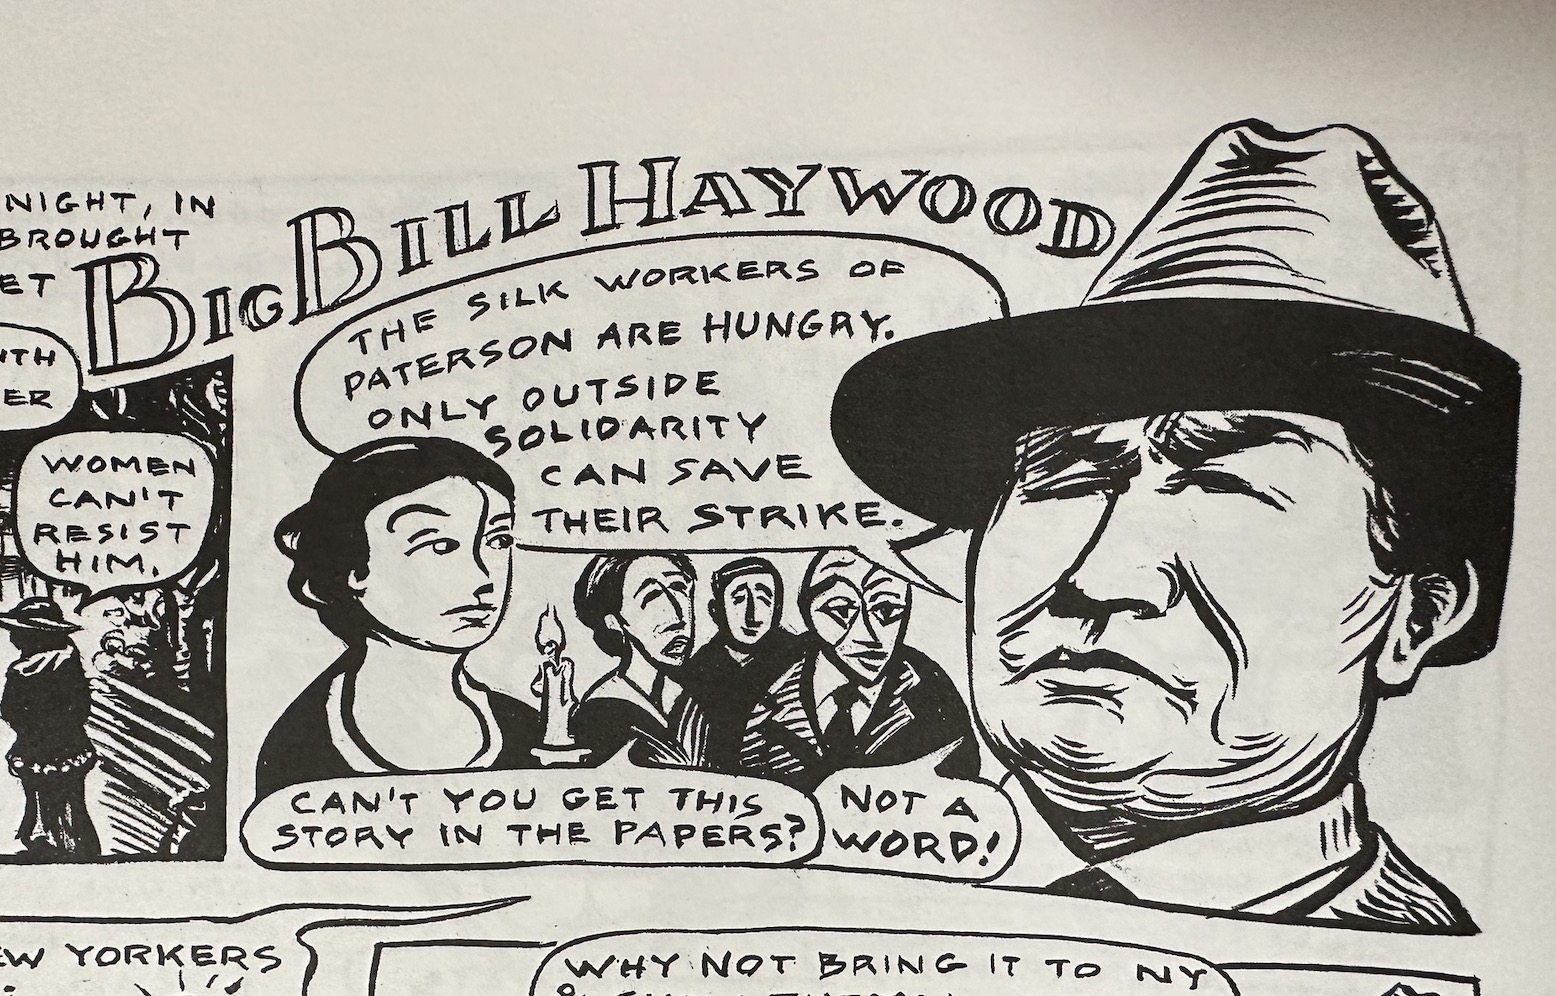 NIGHT, IN
BROUGHT
BIG BILL HAYWOOD
WOMEN
CAN'T
RESIST
HIM.
THE SILK WORKERS OF
PATERSON ARE HUNGRY.
ONLY OUTSIDE
SOLIDARITY
CAN SAVE
THEIR STRIKE.
CAN'T YOU GET THIS
STORY IN THE PAPERS?
NOT A
WORD!
YORKERS
WHY NOT BRING IT TO NY